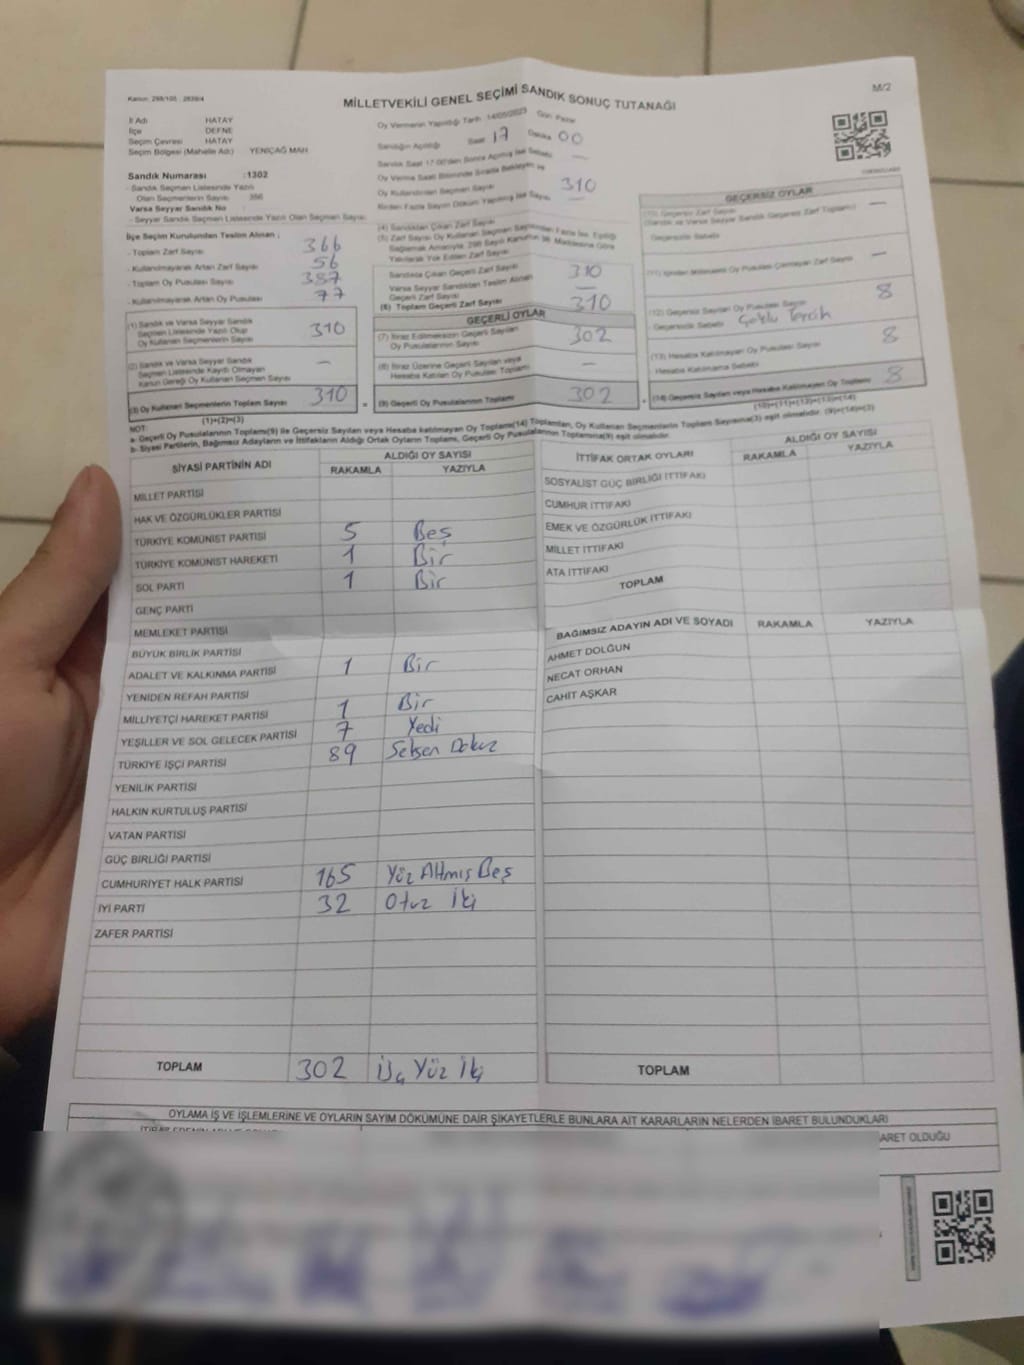 Kanun: 298/105 : 2839/4
M/2
MİLLETVEKİLİ GENEL SEÇİMİ SANDIK SONUÇ TUTANAĞI
İl Adı HATAY
İlçe DEFNE
Seçim Çevresi HATAY
Seçim Bölgesi (Mahalle Adı) YENİÇAĞ MAH.
Sandık Numarası :1302
- Sandık Seçmen Listesinde Yazılı
Olan Seçmenlerin Sayısı 356
Varsa Seyyar Sandık No :
- Seyyar Sandık Seçmen Listesinde Yazılı Olan Seçmen Sayısı
İlçe Seçim Kurulundan Teslim Alınan ;
- Toplam Zarf Sayısı 366
- Kullanılmayarak Artan Zarf Sayısı 56
- Toplam Oy Pusulası Sayısı 387
- Kullanılmayarak Artan Oy Pusulası 77
(1) Sandık ve Varsa Seyyar Sandık
Seçmen Listesinde Yazılı Olup
Oy Kullanan Seçmenlerin Sayısı 310
(2) Sandık ve Varsa Seyyar Sandık
Seçmen Listesinde Kaydı Olmayan
Kanun Gereği Oy Kullanan Seçmen Sayısı —
(3) Oy Kullanan Seçmenlerin Toplam Sayısı 310
(1)+(2)=(3)
Oy Vermenin Yapıldığı Tarih 14/05/2023 Gün Pazar
Sandığın Açıldığı Saat 17 Dakika 00
Sandık Saat 17:00'den Sonra Açılmış İse Sebebi —
Oy Verme Saati Bitiminde Sırada Bekleyen ve
Oy Kullandırılan Seçmen Sayısı 310
Birden Fazla Sayım Döküm Yapılmış İse Sayısı —
(4) Sandıktan Çıkan Zarf Sayısı
(5) Zarf Sayısı Oy Kullanan Seçmen Sayısından Fazla İse, Eşitliği
Sağlamak Amacıyla, 298 Sayılı Kanun'un 98. Maddesine Göre
Yakılarak Yok Edilen Zarf Sayısı
Sandıkta Çıkan Geçerli Zarf Sayısı 310
Varsa Seyyar Sandıktan Teslim Alınan
Geçerli Zarf Sayısı —
(6) Toplam Geçerli Zarf Sayısı 310
GEÇERLİ OYLAR
(7) İtiraz Edilmeksizin Geçerli Sayılan
Oy Pusulalarının Sayısı 302
(8) İtiraz Üzerine Geçerli Sayılan veya
Hesaba Katılan Oy Pusulası Toplamı —
(9) Geçerli Oy Pusulalarının Toplamı 302
GEÇERSİZ OYLAR
(10) Geçersiz Zarf Sayısı
(Sandık ve Varsa Seyyar Sandık Geçersiz Zarf Toplamı) —
Geçersizlik Sebebi
(11) İçinden Milletvekili Oy Pusulası Çıkmayan Zarf Sayısı —
(12) Geçersiz Sayılan Oy Pusulası Sayısı 8
Geçersizlik Sebebi Çoklu Tercih
(13) Hesaba Katılmayan Oy Pusulası Sayısı 8
Hesaba Katılmama Sebebi
(14) Geçersiz Sayılan veya Hesaba Katılmayan Oy Toplamı 8
(10)+(11)+(12)+(13)=(14)
NOT:
a- Geçerli Oy Pusulalarının Toplamı(9) ile Geçersiz Sayılan veya Hesaba katılmayan Oy Toplamı(14) Toplamları, Oy Kullanan Seçmenlerin Toplam Sayısına(3) eşit olmalıdır. (9)+(14)=(3)
b- Siyasi Partilerin, Bağımsız Adayların ve İttifakların Aldığı Ortak Oyların Toplamı, Geçerli Oy Pusulalarının Toplamına(9) eşit olmalıdır.
SİYASİ PARTİNİN ADI ALDIĞI OY SAYISI
RAKAMLA YAZIYLA
MİLLET PARTİSİ
HAK VE ÖZGÜRLÜKLER PARTİSİ
TÜRKİYE KOMÜNİST PARTİSİ 5 Beş
TÜRKİYE KOMÜNİST HAREKETİ 1 Bir
SOL PARTİ 1 Bir
GENÇ PARTİ
MEMLEKET PARTİSİ
BÜYÜK BİRLİK PARTİSİ
ADALET VE KALKINMA PARTİSİ 1 Bir
YENİDEN REFAH PARTİSİ
MİLLİYETÇİ HAREKET PARTİSİ 1 Bir
YEŞİLLER VE SOL GELECEK PARTİSİ 7 Yedi
TÜRKİYE İŞÇİ PARTİSİ 89 Seksen Dokuz
YENİLİK PARTİSİ
HALKIN KURTULUŞ PARTİSİ
VATAN PARTİSİ
GÜÇ BİRLİĞİ PARTİSİ
CUMHURİYET HALK PARTİSİ 165 Yüz Altmış Beş
İYİ PARTİ 32 Otuz İki
ZAFER PARTİSİ
TOPLAM 302 Üç Yüz İki
İTTİFAK ORTAK OYLARI ALDIĞI OY SAYISI
RAKAMLA YAZIYLA
SOSYALİST GÜÇ BİRLİĞİ İTTİFAKI
CUMHUR İTTİFAKI
EMEK VE ÖZGÜRLÜK İTTİFAKI
MİLLET İTTİFAKI
ATA İTTİFAKI
TOPLAM
BAĞIMSIZ ADAYIN ADI VE SOYADI RAKAMLA YAZIYLA
AHMET DOLĞUN
NECAT ORHAN
CAHİT AŞKAR
TOPLAM
OYLAMA İŞ VE İŞLEMLERİNE VE OYLARIN SAYIM DÖKÜMÜNE DAİR ŞİKAYETLERLE BUNLARA AİT KARARLARIN NELERDEN İBARET BULUNDUKLARI
ARET OLDUĞU